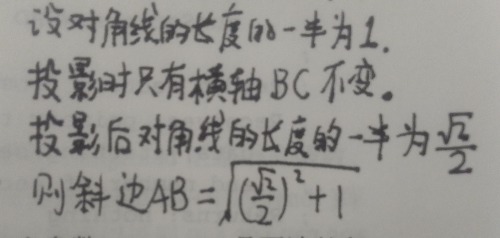 设对角线的长度的一半为1.
投影时只有横轴BC不变。
投影后对角线的长度的一半为√2/2
则斜边AB=√((√2/2)²+1)